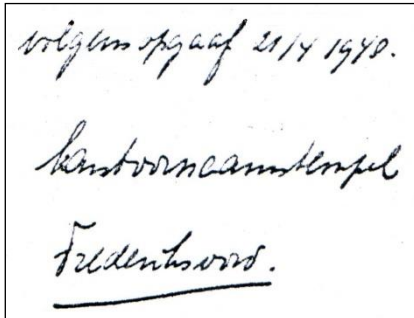 volgens opgaaf 21/4 1948.
kantoornaamstempel
Frederiksoord.